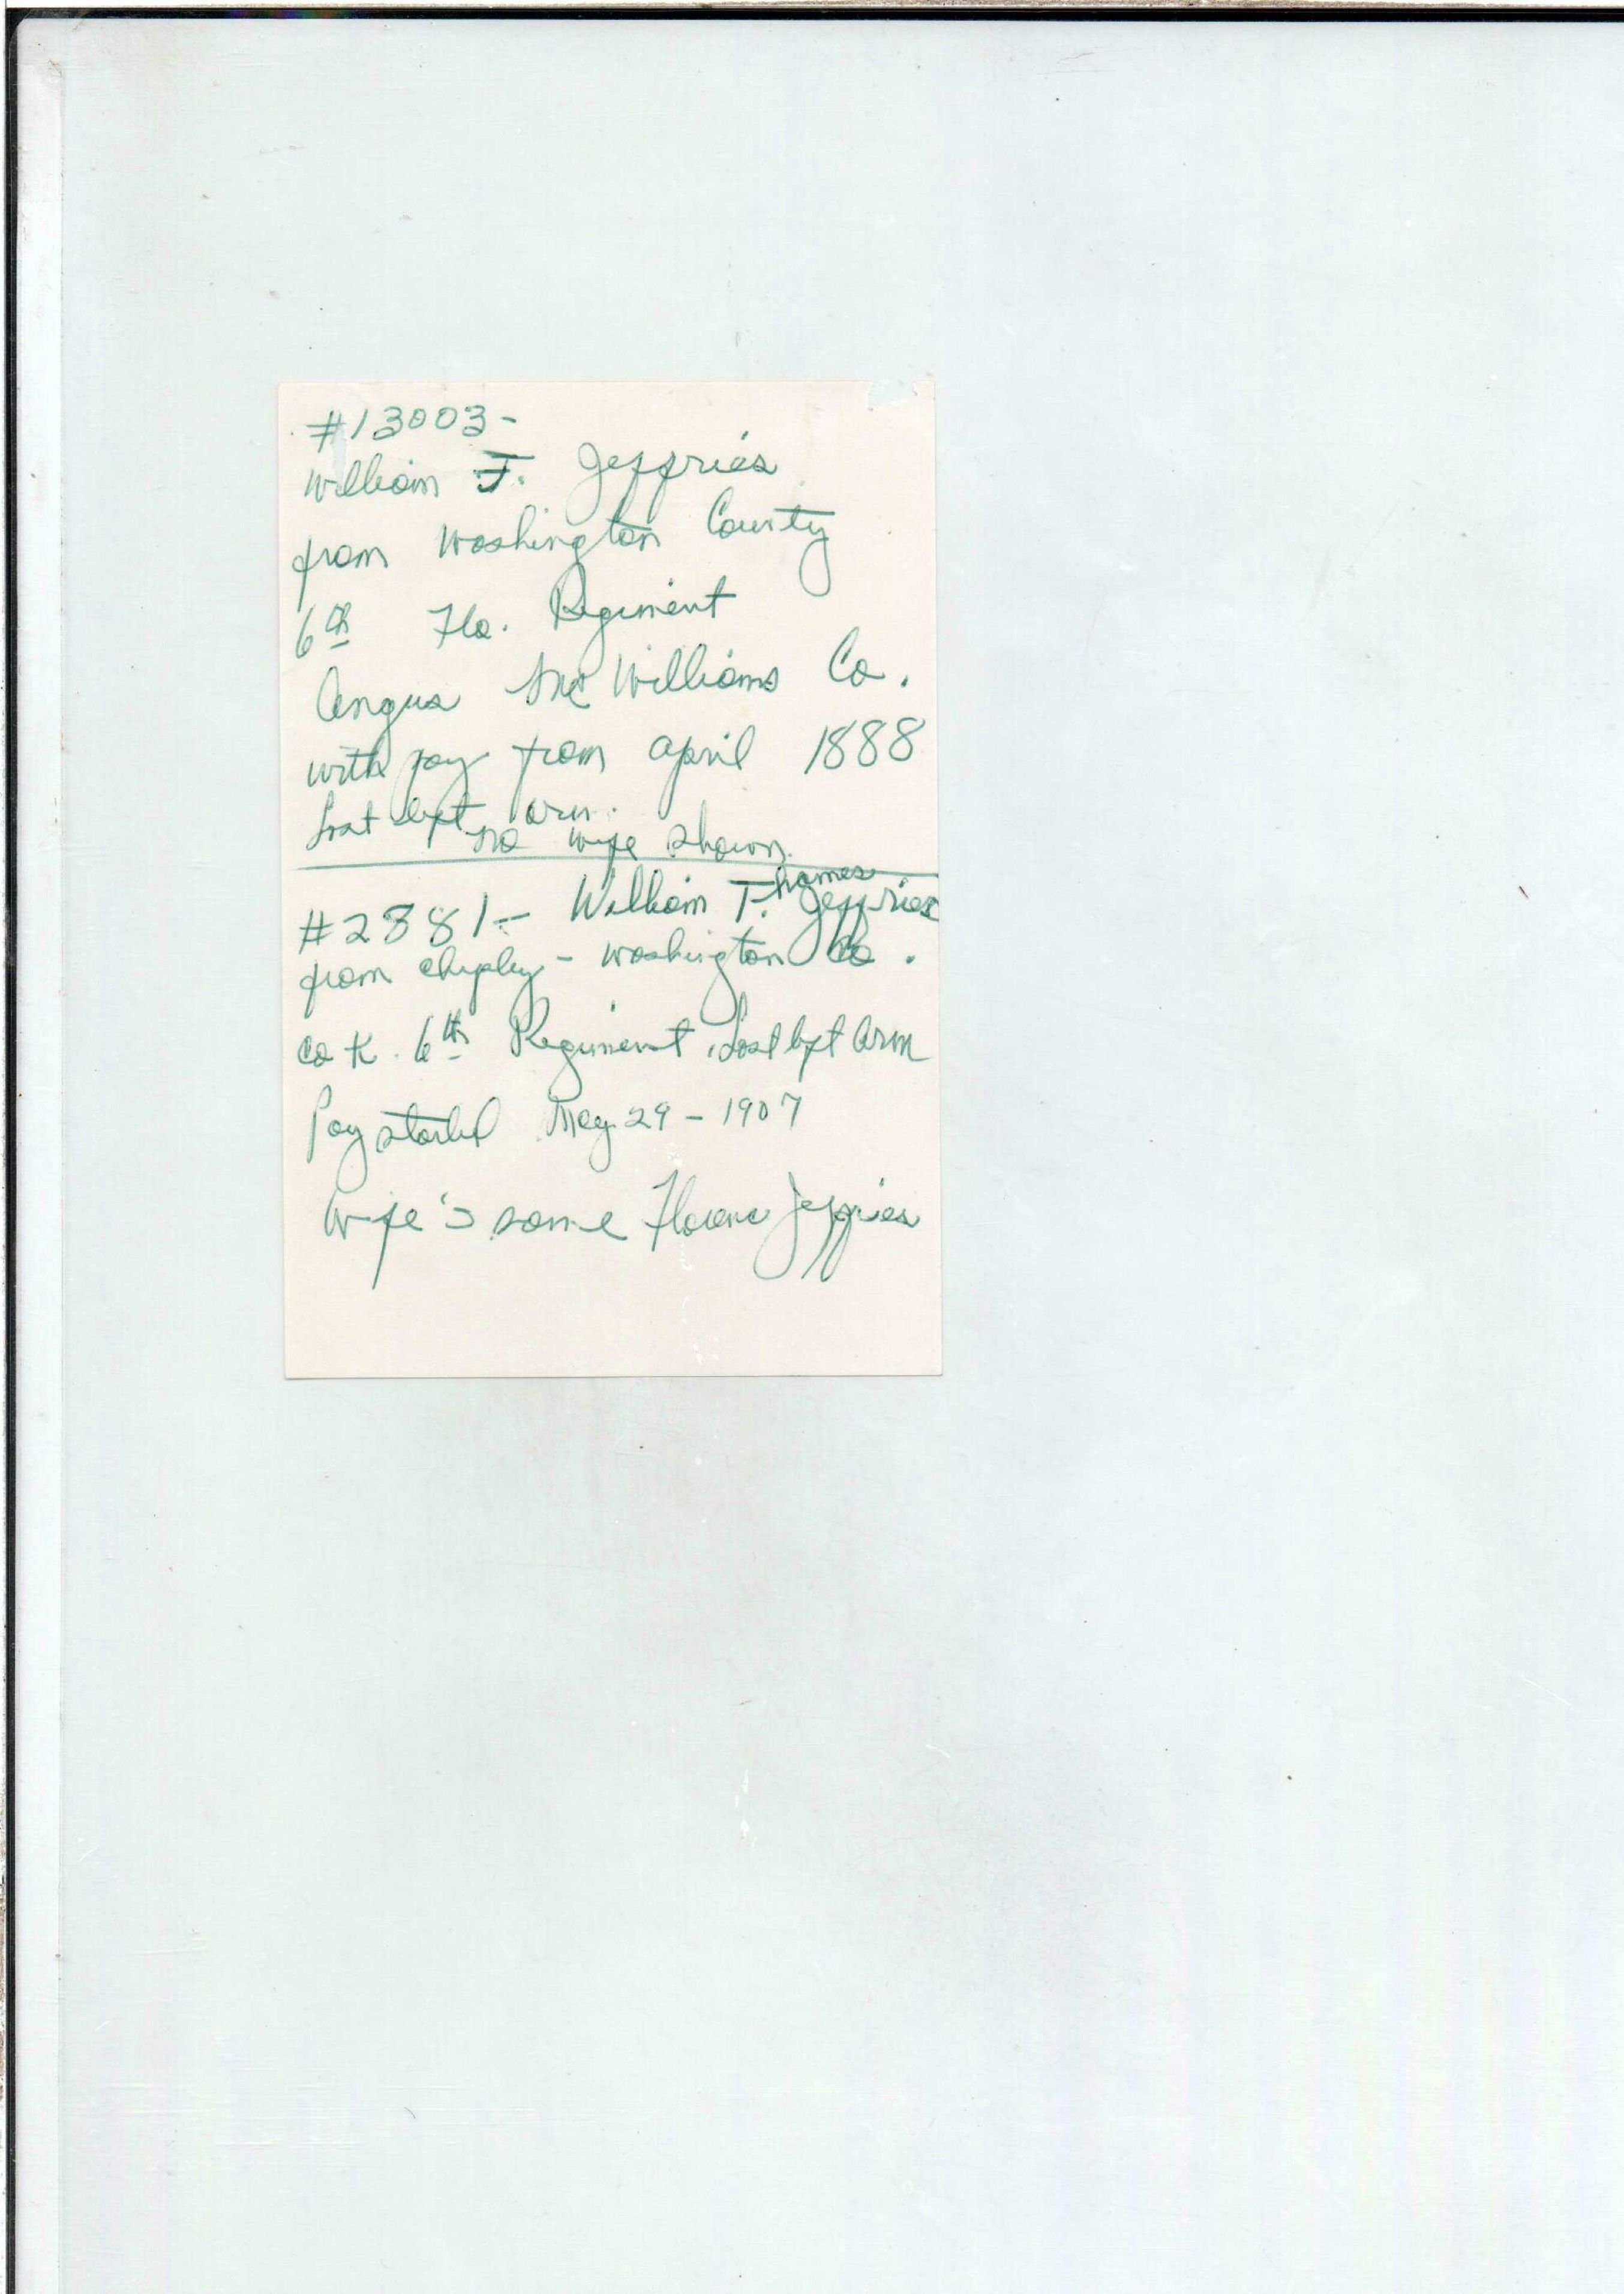 #13003-
William F. Jeffries
from Washington County
6th Fla. Regiment
Angus McWilliams Co.
with pay from april 1888
Lost left arm.
no wife shown.
#2881- William Thomas Jeffries
from chipley - Washington Co.
Co K. 6th Regiment. Lost left Arm
Pay started May 29 - 1907
Wife's name Florence Jeffries